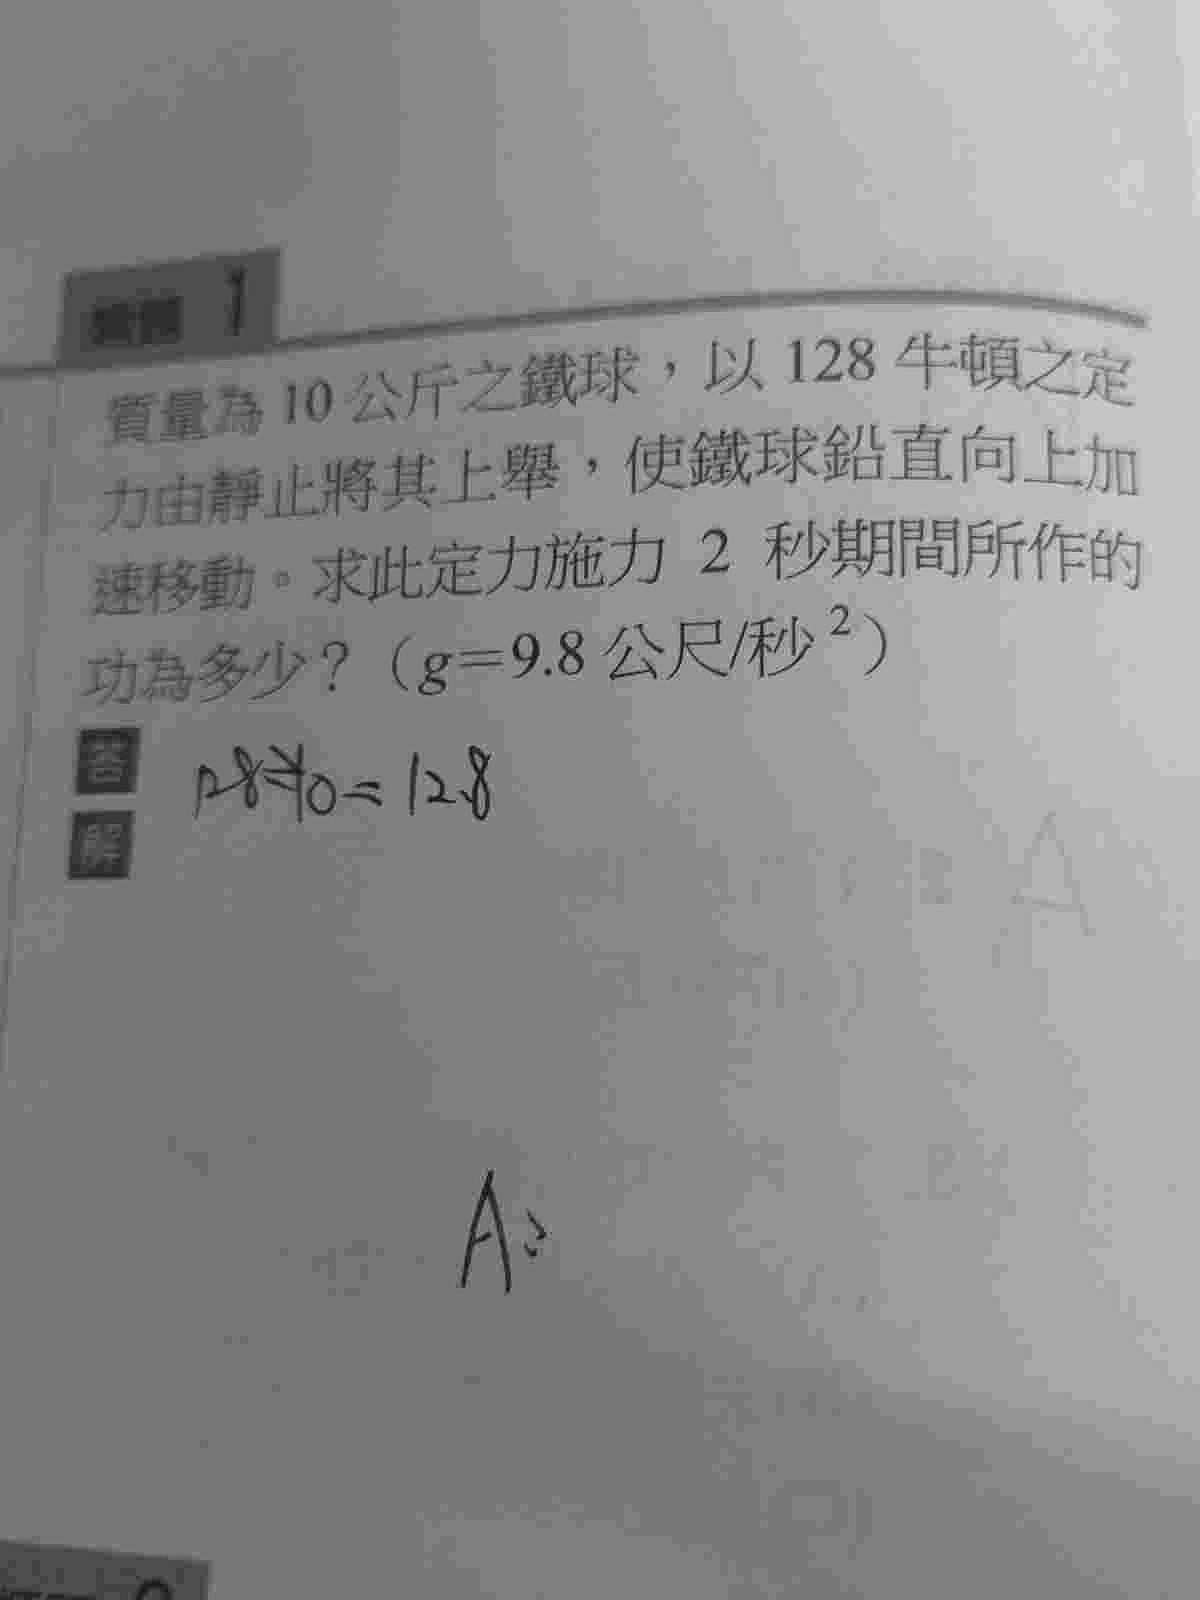 1
質量為 10 公斤之鐵球，以 128 牛頓之定
力由靜止將其上舉，使鐵球鉛直向上加
速移動。求此定力施力 2 秒期間所作的
功為多少？（g＝9.8 公尺/秒²）
答 128÷10＝12.8
解
A：